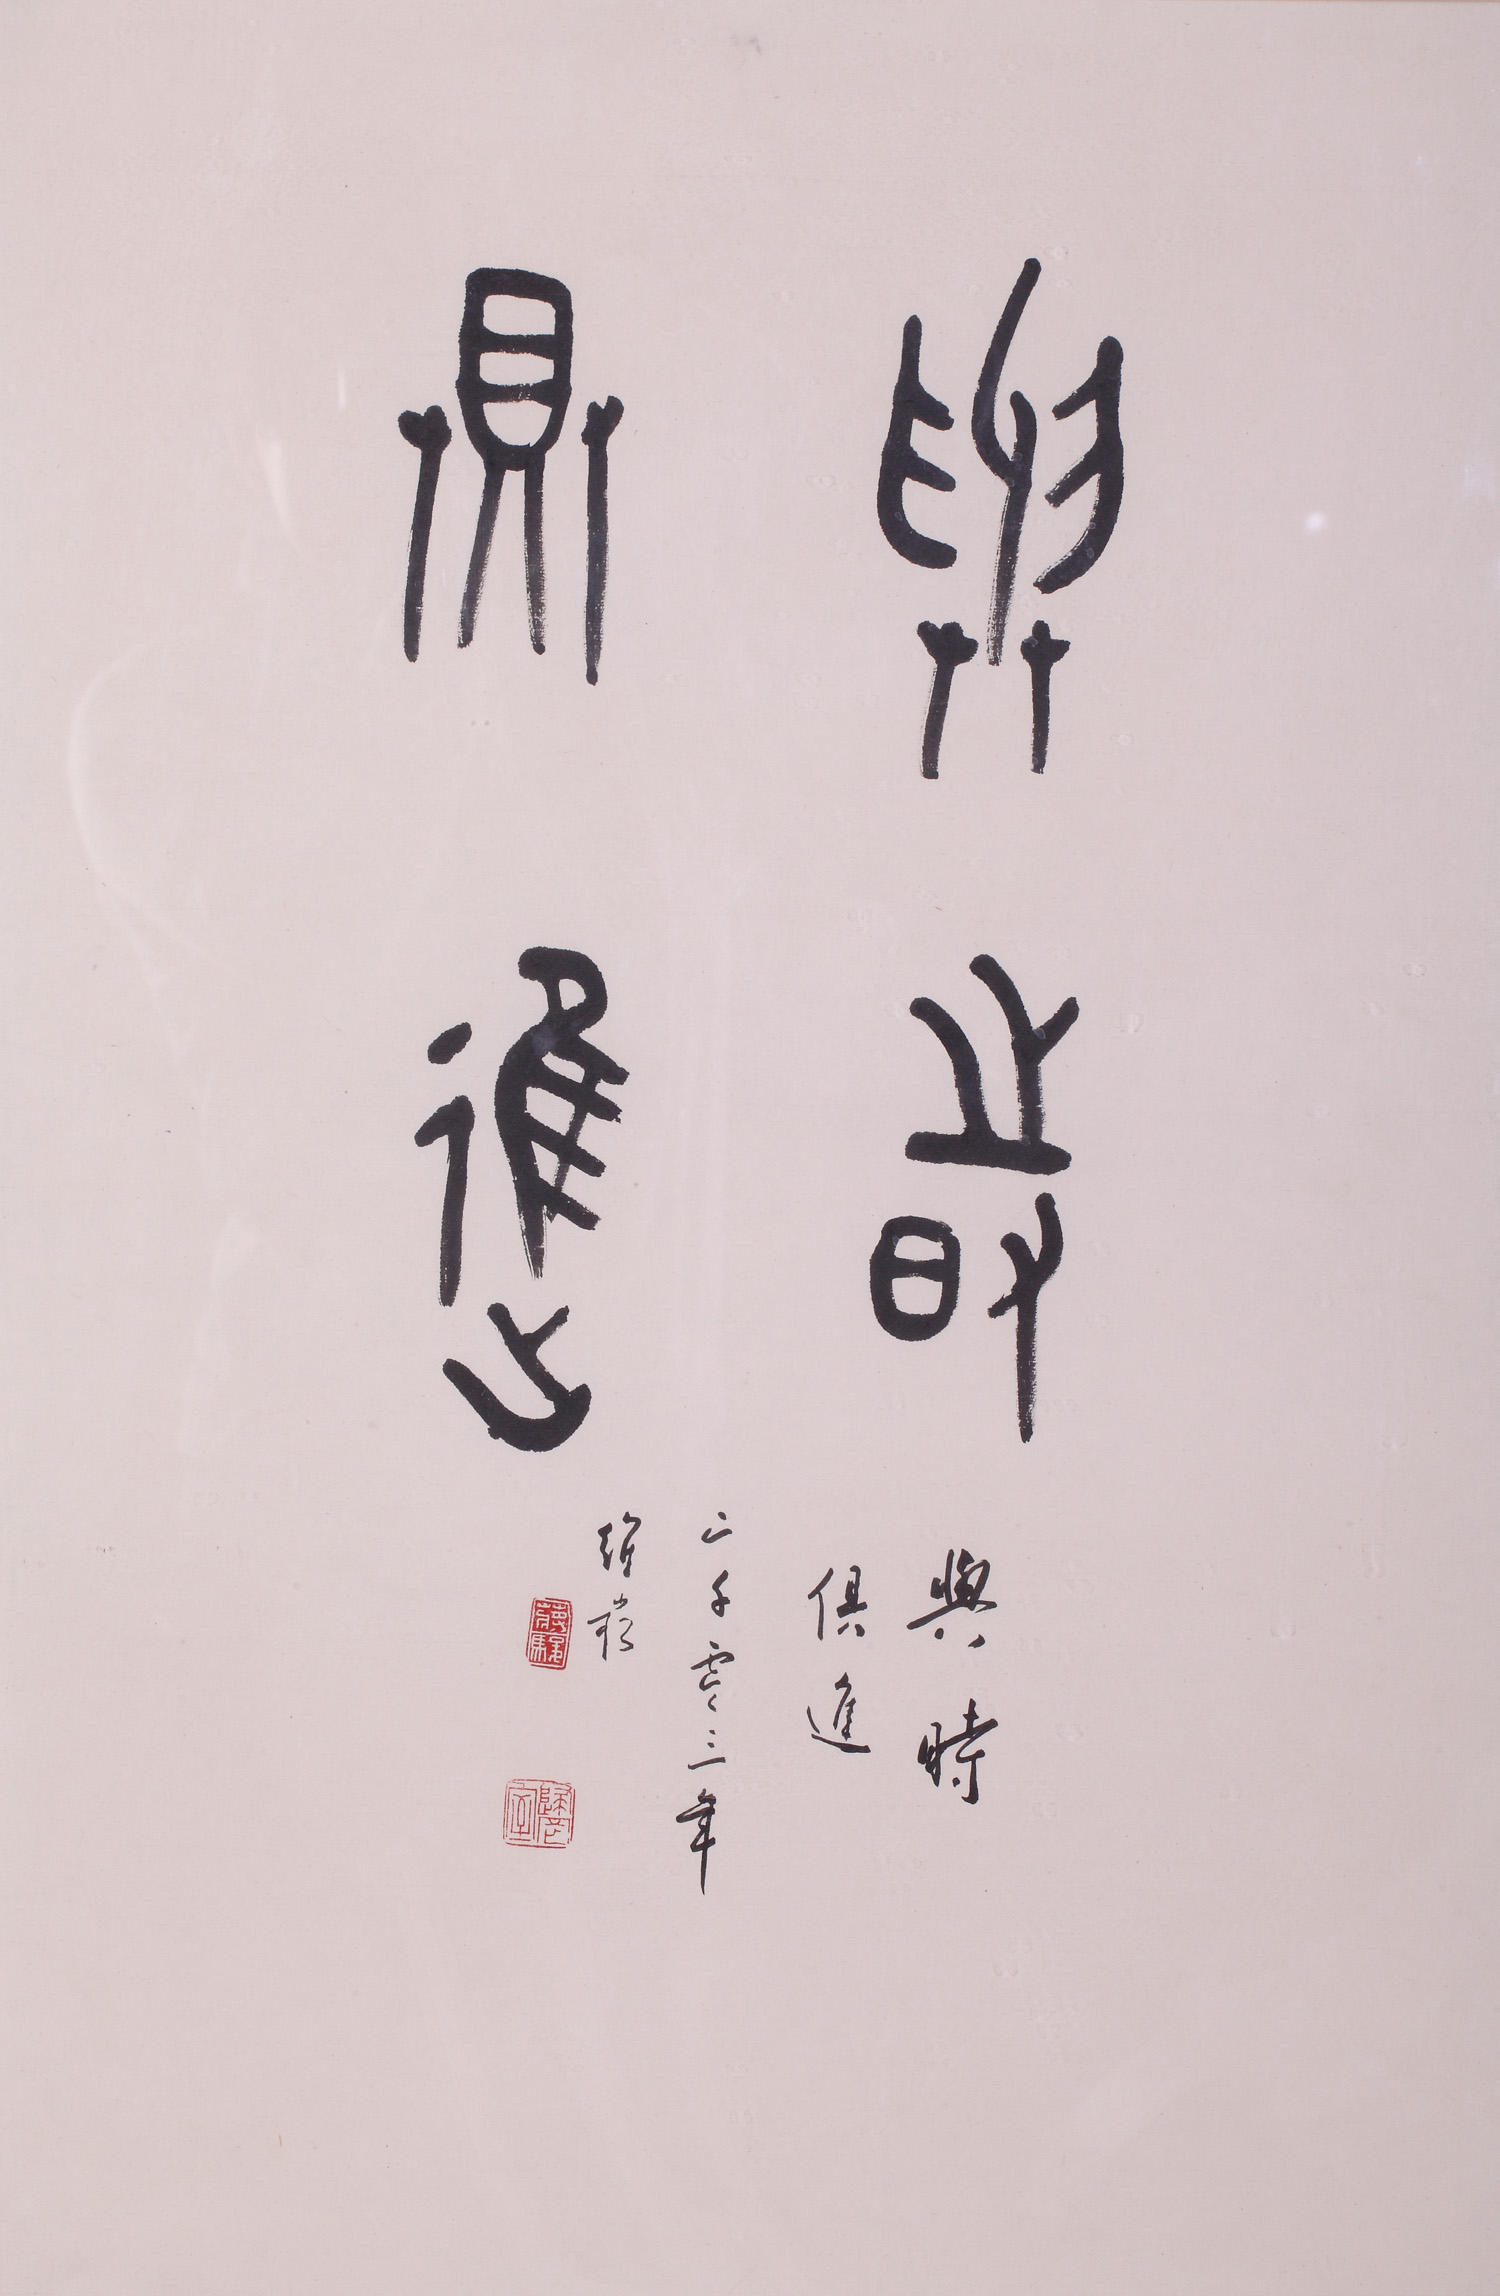 與時
俱進
與時
俱進
二千零三年